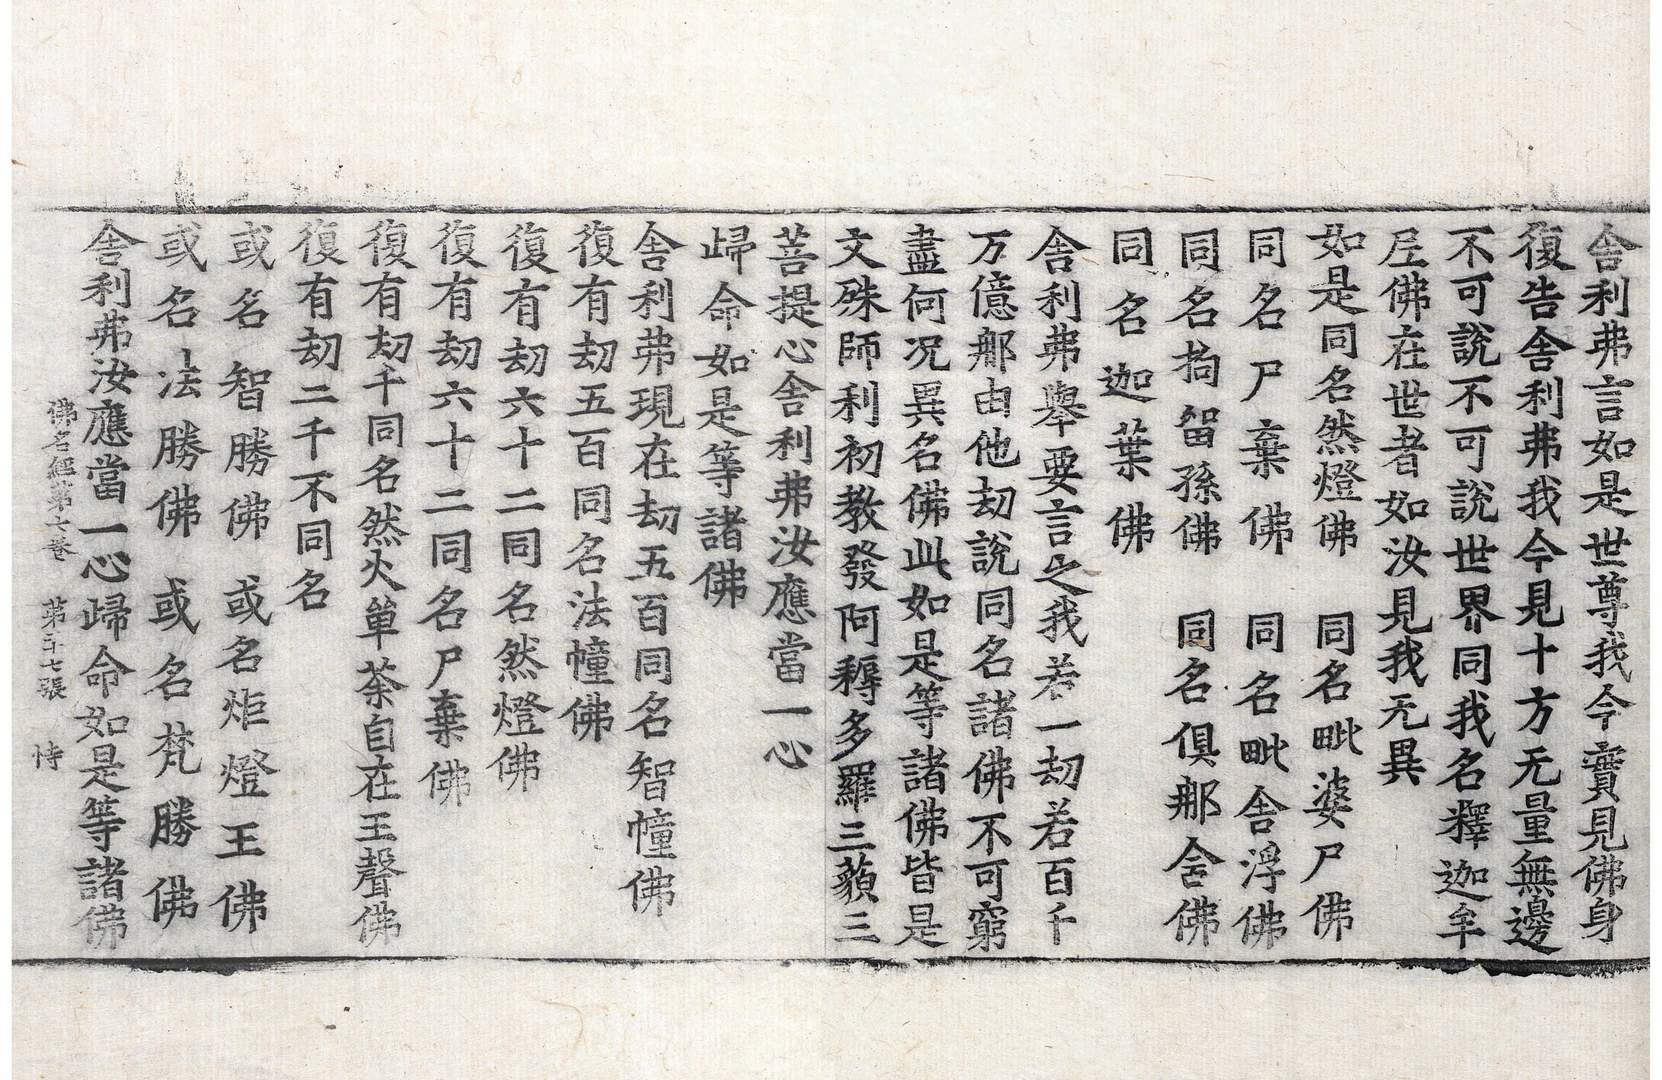 舎利弗言如是世尊我今實見佛身
復告舎利弗我今見十方无量無邊
不可說不可說世界同我名釋迦牟
尼佛在世者如汝見我无異
如是同名然燈佛　同名毗婆尸佛
同名尸棄佛　同名毗舎浮佛
同名拘留孫佛　同名俱那舎佛
同名迦葉佛
舎利弗舉要言之我若一劫若百千
万億那由他劫說同名諸佛不可窮
盡何況異名佛此如是等諸佛皆是
文殊師利初教發阿耨多羅三藐三
菩提心舎利弗汝應當一心
歸命如是等諸佛
舎利弗現在劫五百同名智幢佛
復有劫五百同名法幢佛
復有劫六十二同名然燈佛
復有劫六十二同名尸棄佛
復有劫千同名然火單荼自在王聲佛
復有劫二千不同名
或名智勝佛　或名炬燈王佛
或名法勝佛　或名梵勝佛
舎利弗汝應當一心歸命如是等諸佛
佛名經第六卷　第二十七張　恃